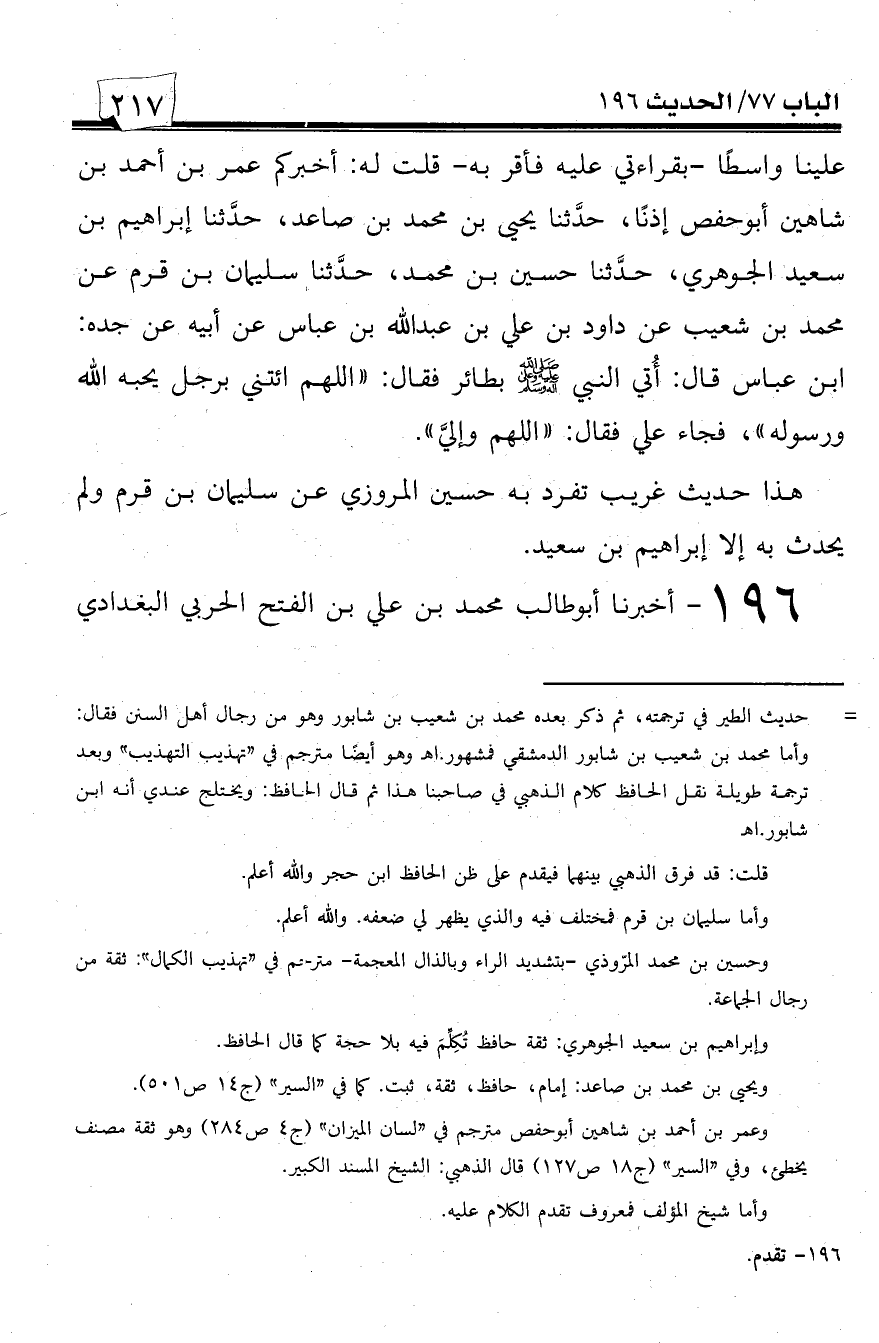 الباب ٧٧/ الحديث ١٩٦
٢١٧
علينا واسطًا -بقراءتي عليه فأقر به- قلت له: أخبركم عمر بن أحمد بن
شاهين أبوحفص إذنًا، حدَّثنا يحيى بن محمد بن صاعد، حدَّثنا إبراهيم بن
سعيد الجوهري، حدَّثنا حسين بن محمد، حدَّثنا سليمان بن قرم عن
محمد بن شعيب عن داود بن علي بن عبدالله بن عباس عن أبيه عن جده:
ابن عباس قال: أُتي النبي ﷺ بطائر فقال: «اللهم ائتني برجل يحبه الله
ورسوله»، فجاء علي فقال: «اللهم وإليَّ».
هذا حديث غريب تفرد به حسين المروزي عن سليمان بن قرم ولم
يحدث به إلا إبراهيم بن سعيد.
١٩٦- أخبرنا أبوطالب محمد بن علي بن الفتح الحربي البغدادي
= حديث الطير في ترجمته، ثم ذكر بعده محمد بن شعيب بن شابور وهو من رجال أهل السنن فقال:
وأما محمد بن شعيب بن شابور الدمشقي فمشهور.اهـ وهو أيضًا مترجم في «تهذيب التهذيب» وبعد
ترجمة طويلة نقل الحافظ كلام الذهبي في صاحبنا هذا ثم قال الحافظ: ويختلج عندي أنه ابن
شابور.اهـ
قلت: قد فرق الذهبي بينهما فيقدم على ظن الحافظ ابن حجر والله أعلم.
وأما سليمان بن قرم فمختلف فيه والذي يظهر لي ضعفه. والله أعلم.
وحسين بن محمد المرّوذي -بتشديد الراء وبالذال المعجمة- مترجم في «تهذيب الكمال»: ثقة من
رجال الجماعة.
وإبراهيم بن سعيد الجوهري: ثقة حافظ تُكِلِّمَ فيه بلا حجة كما قال الحافظ.
ويحيى بن محمد بن صاعد: إمام، حافظ، ثقة، ثبت. كما في «السير» (ج١٤ ص٥٠١).
وعمر بن أحمد بن شاهين أبوحفص مترجم في «لسان الميزان» (ج٤ ص٢٨٤) وهو ثقة مصنف
يخطئ، وفي «السير» (ج١٨ ص١٢٧) قال الذهبي: الشيخ المسند الكبير.
وأما شيخ المؤلف فمعروف تقدم الكلام عليه.
١٩٦- تقدم.